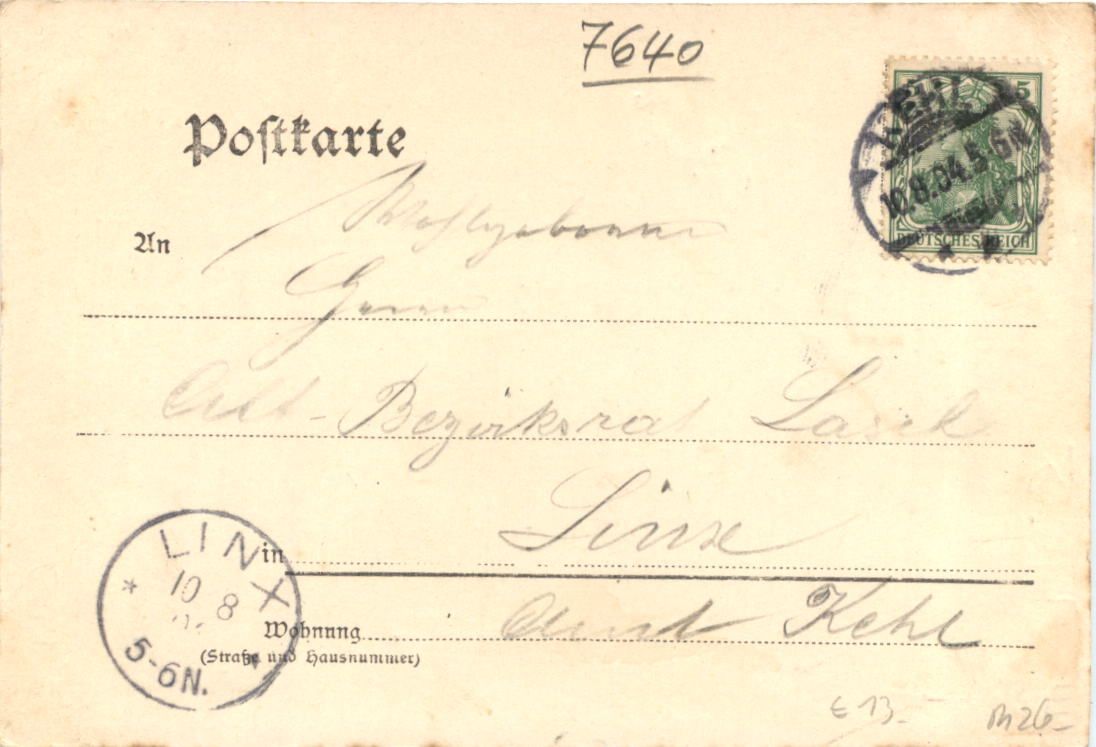 7640
5
KEHL
10.8.04.5-6N.
DEUTSCHES REICH
Poſtkarte
An
Wohlgeboren
Herrn
Alt-Bezirksrat
in Linx
Wohnung Amt Kehl
(Straße und Hausnummer)
LINX
10 8
5-6N.
€ 13.-